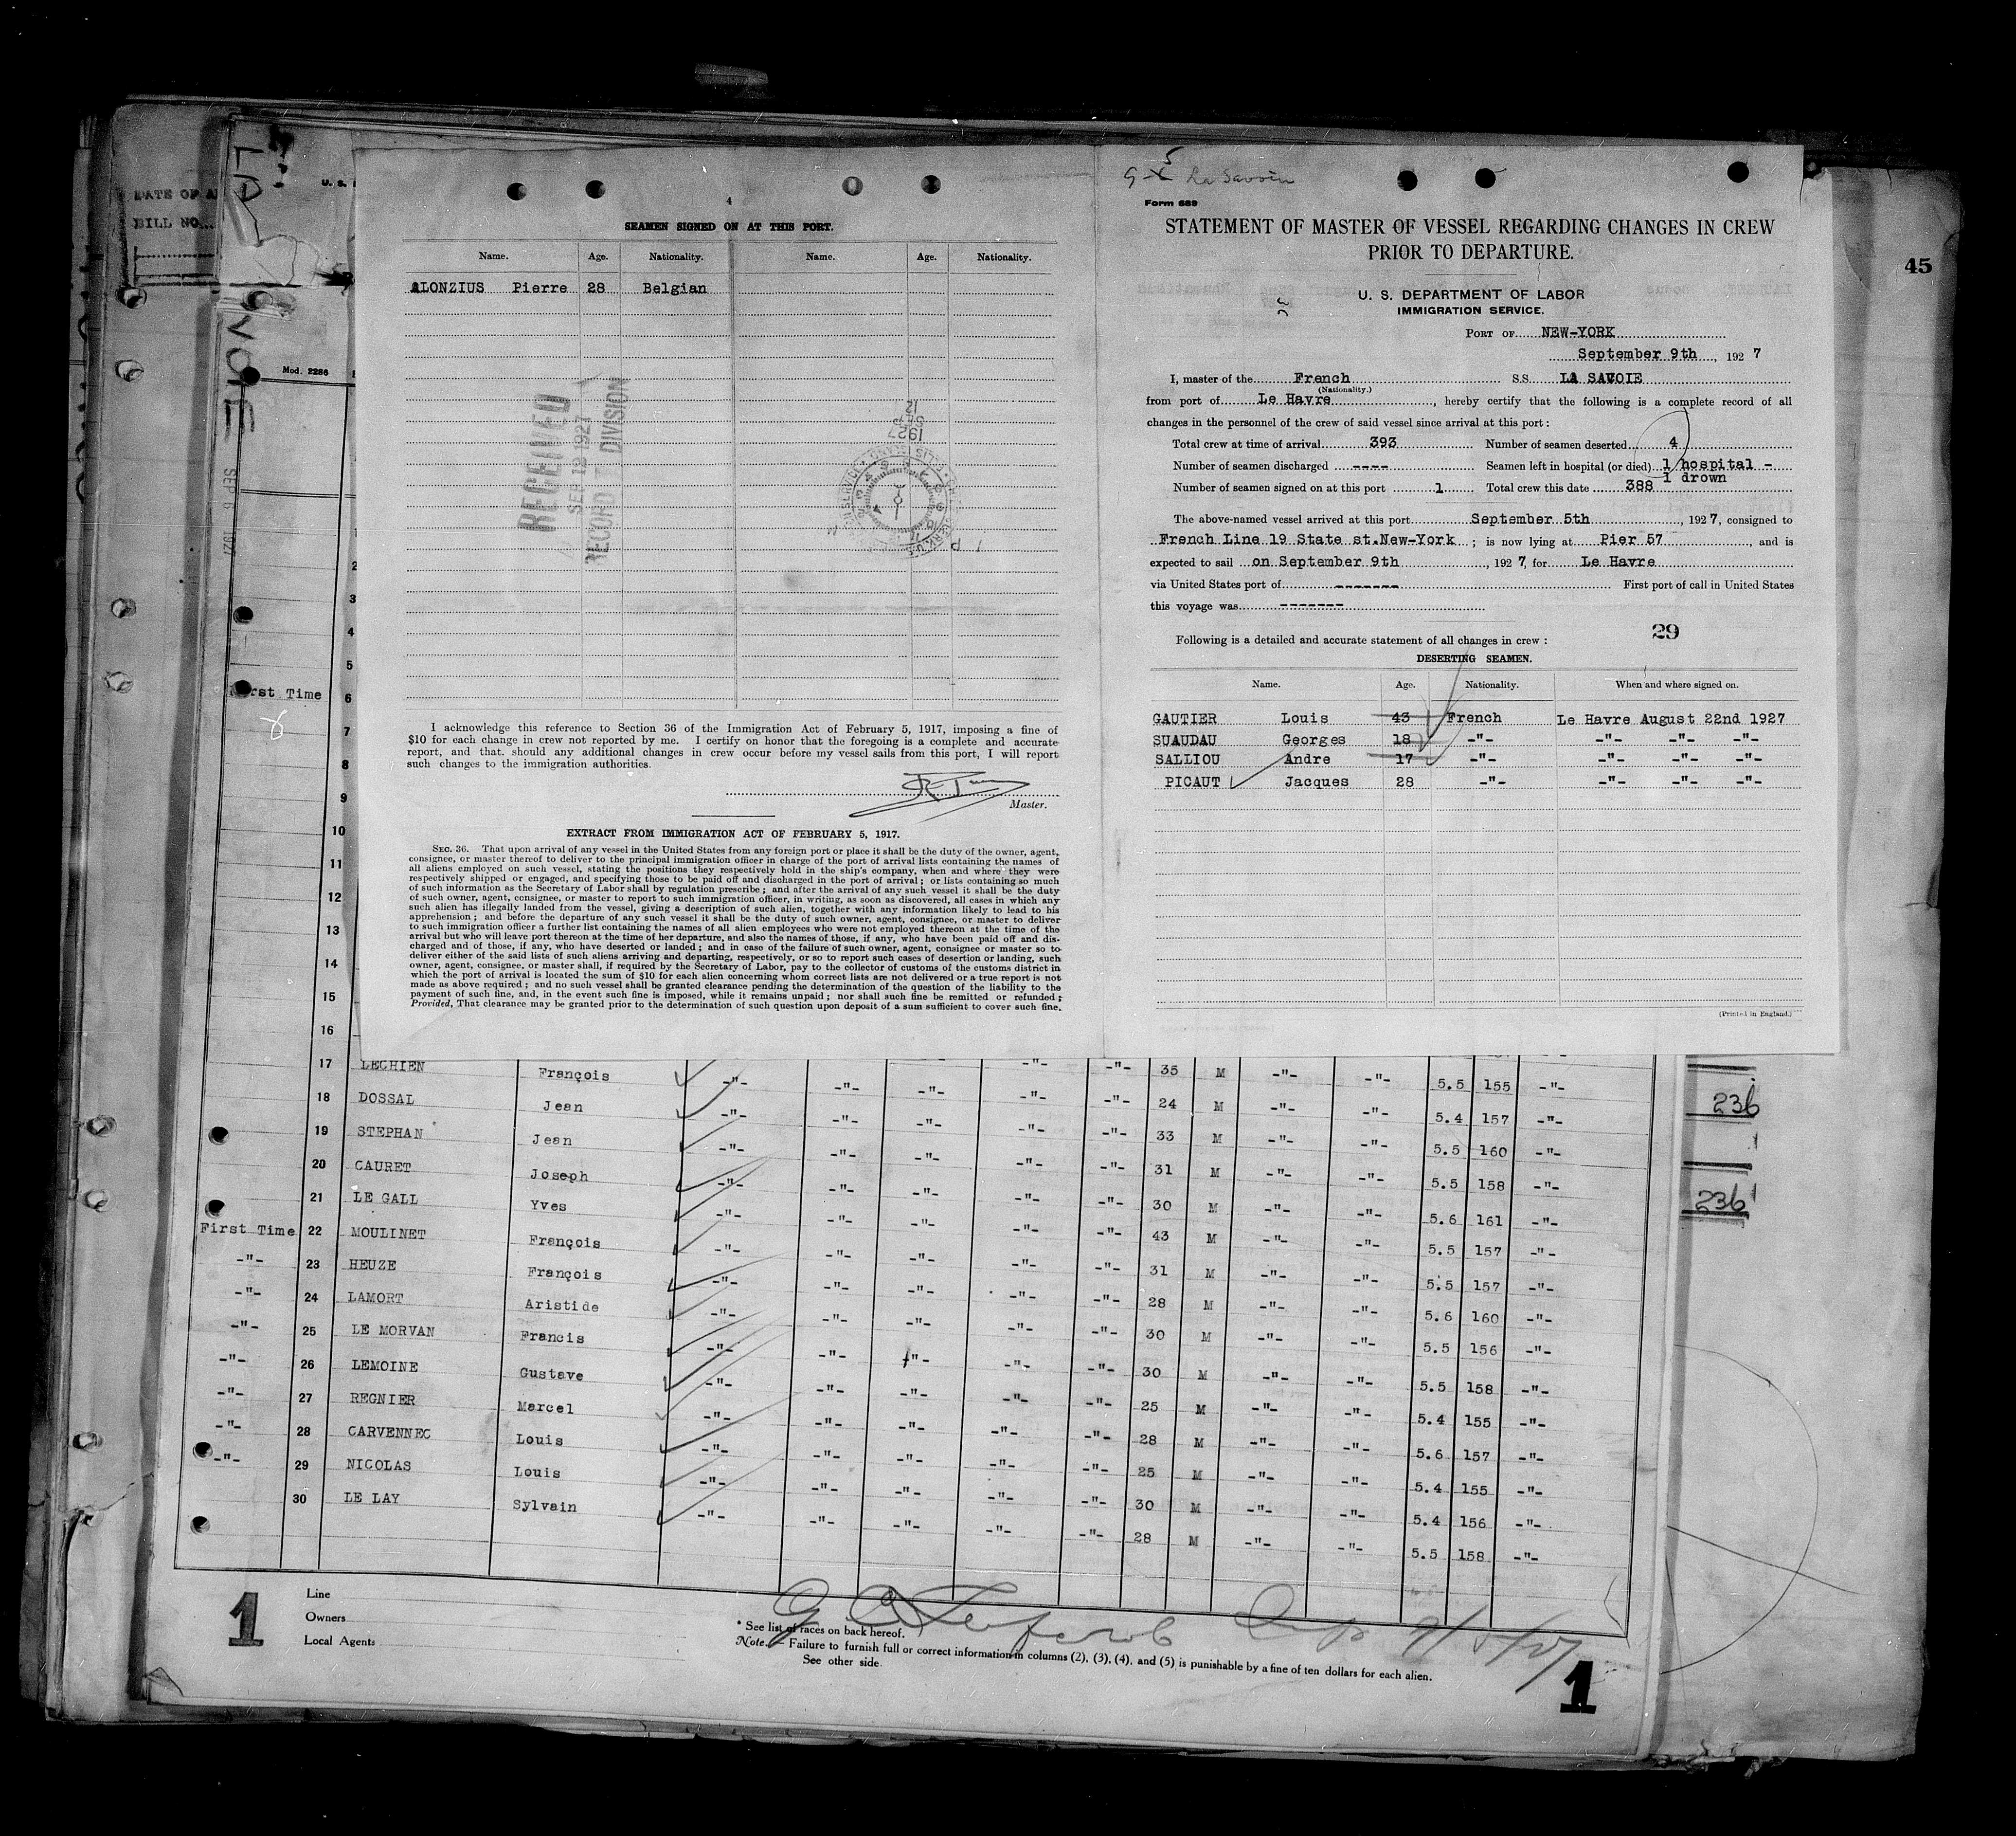 45
DATE OF A
BILL NO.
LA
SAVOIE
SEP 6 1927
U. S.
Mod. 2286
4
SEAMEN SIGNED ON AT THIS PORT.
Name. Age. Nationality. Name. Age. Nationality.
ALONZIUS Pierre 28 Belgian
RECEIVED
SEP 12 1927
RECORD DIVISION
12
SEP
1927
I acknowledge this reference to Section 36 of the Immigration Act of February 5, 1917, imposing a fine of
$10 for each change in crew not reported by me. I certify on honor that the foregoing is a complete and accurate
report, and that. should any additional changes in crew occur before my vessel sails from this port, I will report
such changes to the immigration authorities.
Master.
EXTRACT FROM IMMIGRATION ACT OF FEBRUARY 5, 1917.
SEC. 36. That upon arrival of any vessel in the United States from any foreign port or place it shall be the duty of the owner, agent,
consignee, or master thereof to deliver to the principal immigration officer in charge of the port of arrival lists containing the names of
all aliens employed on such vessel, stating the positions they respectively hold in the ship's company, when and where they were
respectively shipped or engaged, and specifying those to be paid off and discharged in the port of arrival; or lists containing so much
of such information as the Secretary of Labor shall by regulation prescribe; and after the arrival of any such vessel it shall be the duty
of such owner, agent, consignee, or master to report to such immigration officer, in writing, as soon as discovered, all cases in which any
such alien has illegally landed from the vessel, giving a description of such alien, together with any information likely to lead to his
apprehension; and before the departure of any such vessel it shall be the duty of such owner, agent, consignee, or master to deliver
to such immigration officer a further list containing the names of all alien employees who were not employed thereon at the time of the
arrival but who will leave port thereon at the time of her departure, and also the names of those, if any, who have been paid off and dis-
charged and of those, if any, who have deserted or landed; and in case of the failure of such owner, agent, consignee or master so to
deliver either of the said lists of such aliens arriving and departing, respectively, or so to report such cases of desertion or landing, such
owner, agent, consignee, or master shall, if required by the Secretary of Labor, pay to the collector of customs of the customs district in
which the port of arrival is located the sum of $10 for each alien concerning whom correct lists are not delivered or a true report is not
made as above required; and no such vessel shall be granted clearance pending the determination of the question of the liability to the
payment of such fine, and, in the event such fine is imposed, while it remains unpaid; nor shall such fine be remitted or refunded;
Provided, That clearance may be granted prior to the determination of such question upon deposit of a sum sufficient to cover such fine.
9-5 La Savoie
Form 689
STATEMENT OF MASTER OF VESSEL REGARDING CHANGES IN CREW
PRIOR TO DEPARTURE.
U. S. DEPARTMENT OF LABOR
IMMIGRATION SERVICE.
PORT OF NEW-YORK
September 9th, 1927
I, master of the French S.S. LA SAVOIE
(Nationality.)
from port of Le Havre, hereby certify that the following is a complete record of all
changes in the personnel of the crew of said vessel since arrival at this port:
Total crew at time of arrival 393 Number of seamen deserted 4
Number of seamen discharged ---- Seamen left in hospital (or died) 1 hospital -
1 drown
Number of seamen signed on at this port 1 Total crew this date 388
The above-named vessel arrived at this port September 5th, 1927, consigned to
French Line 19 State st.New-York; is now lying at Pier 57, and is
expected to sail on September 9th, 1927, for Le Havre
via United States port of ------- First port of call in United States
this voyage was -------
29
Following is a detailed and accurate statement of all changes in crew:
DESERTING SEAMEN.
Name. Age. Nationality. When and where signed on.
GAUTIER Louis 43 French Le Havre August 22nd 1927
SUAUDAU Georges 18 -"- -"- -"- -"-
SALLIOU Andre 17 -"- -"- -"- -"-
PICAUT Jacques 28 -"- -"- -"- -"-
(Printed in England.)
1
2
3
4
5
First Time 6
7
8
9
10
11
12
13
14
15
16
17 LECHIEN François -"- -"- -"- -"- -"- 35 M -"- -"- 5.5 155 -"-
18 DOSSAL Jean -"- -"- -"- -"- -"- 24 M -"- -"- 5.4 157 -"-
19 STEPHAN Jean -"- -"- -"- -"- -"- 33 M -"- -"- 5.5 160 -"-
20 CAURET Joseph -"- -"- -"- -"- -"- 31 M -"- -"- 5.5 158 -"-
21 LE GALL Yves -"- -"- -"- -"- -"- 30 M -"- -"- 5.6 161 -"-
First Time 22 MOULINET François -"- -"- -"- -"- -"- 43 M -"- -"- 5.5 157 -"-
-"- 23 HEUZE François -"- -"- -"- -"- -"- 31 M -"- -"- 5.5 157 -"-
-"- 24 LAMORT Aristide -"- -"- -"- -"- -"- 28 M -"- -"- 5.6 160 -"-
-"- 25 LE MORVAN Francis -"- -"- -"- -"- -"- 30 M -"- -"- 5.5 156 -"-
-"- 26 LEMOINE Gustave -"- -"- -"- -"- -"- 30 M -"- -"- 5.5 158 -"-
-"- 27 REGNIER Marcel -"- -"- -"- -"- -"- 25 M -"- -"- 5.4 155 -"-
-"- 28 CARVENNEC Louis -"- -"- -"- -"- -"- 28 M -"- -"- 5.6 157 -"-
-"- 29 NICOLAS Louis -"- -"- -"- -"- -"- 25 M -"- -"- 5.4 155 -"-
30 LE LAY Sylvain -"- -"- -"- -"- -"- 30 M -"- -"- 5.4 156 -"-
28 M -"- -"- 5.5 158 -"-
236
236
1
Line
Owners
Local Agents
* See list of races on back hereof.
Note.— Failure to furnish full or correct information in columns (2), (3), (4), and (5) is punishable by a fine of ten dollars for each alien.
See other side.
9/5/27
1